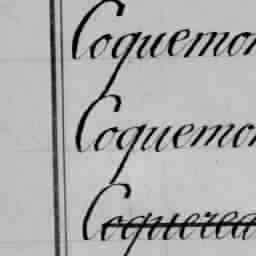 Coquemon
Coquemon
Coquerea